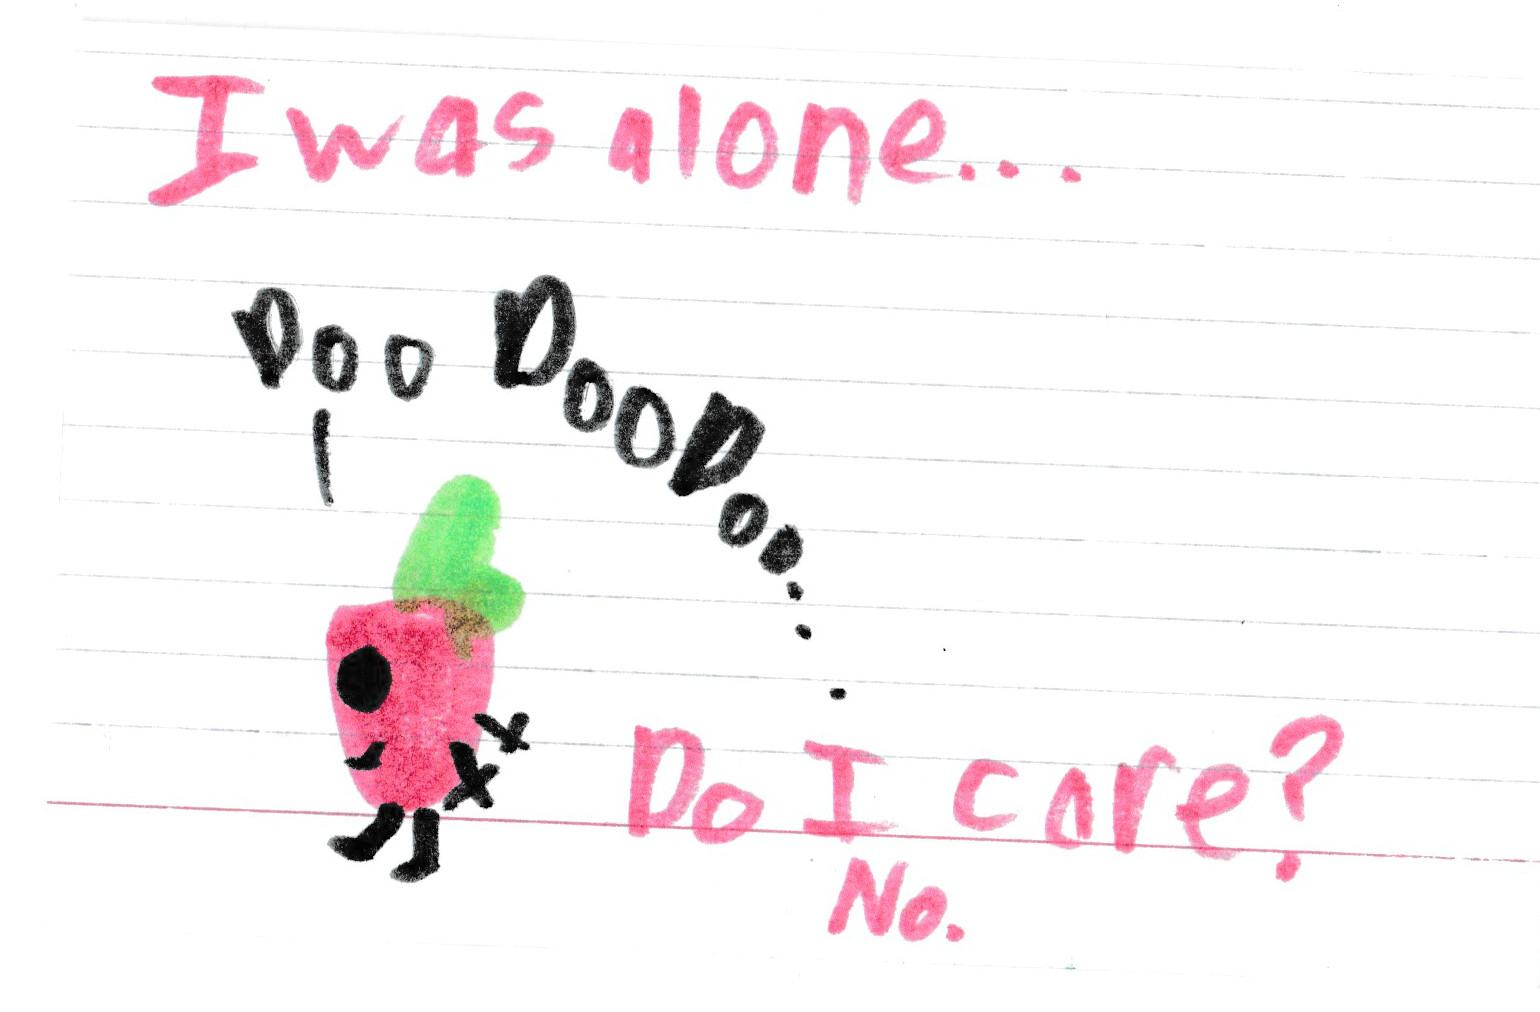 I was alone...
Doo DooDoo...
Do I care?
No.